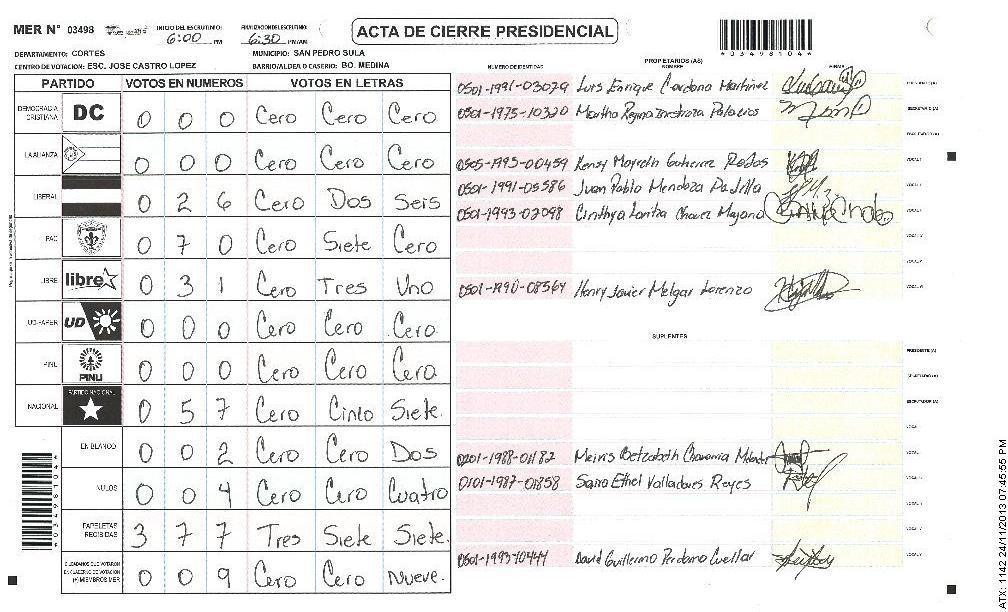 MER N° 03498
INICIO DEL ESCRUTINIO: 6:00 PM
FINALIZACION DEL ESCRUTINIO: 6:30 PM/AM
ACTA DE CIERRE PRESIDENCIAL
*03498104*
DEPARTAMENTO: CORTES
MUNICIPIO: SAN PEDRO SULA
CENTRO DE VOTACION: ESC. JOSE CASTRO LOPEZ
BARRIO/ALDEA O CASERIO: BO. MEDINA
PARTIDO VOTOS EN NUMEROS VOTOS EN LETRAS
DEMOCRACIA CRISTIANA DC 0 0 0 Cero Cero Cero
LA ALIANZA 0 0 0 Cero Cero Cero
LIBERAL 0 2 6 Cero Dos Seis
PAC 0 7 0 Cero Siete Cero
LIBRE libre 0 3 1 Cero Tres Uno
UD-FAPER UD 0 0 0 Cero Cero Cero
PINU PINU 0 0 0 Cero Cero Cero
NACIONAL PARTIDO NACIONAL 0 5 7 Cero Cinco Siete.
EN BLANCO 0 0 2 Cero Cero Dos
NULOS 0 0 4 Cero Cero Cuatro
PAPELETAS RECIBIDAS 3 7 7 Tres Siete Siete.
CIUDADANOS QUE VOTARON EN CUADERNO DE VOTACION (+) MIEMBROS MER 0 0 9 Cero Cero Nueve.
PROPIETARIOS (AS)
NUMERO DE IDENTIDAD NOMBRE FIRMA
0501-1991-03079 Luis Enrique Cardona Martinez
0501-1975-10320 Martha Regina Inestroza Palacios
0505-1995-00459 Kensy Mayreth Gutierrez Rodas
0501-1991-05586 Juan Pablo Mendoza Padilla
0501-1993-02098 Cinthya Loritza Chavez Mayano
0501-1990-08564 Henry Javier Melgar Lorenzo
SUPLENTES
PRESIDENTE (A)
SECRETARIO (A)
ESCRUTADOR (A)
0201-1988-01182 Meivis Betzabeth Chavarria
0101-1987-01858 Saira Ethel Valladares Reyes
0501-1993-10444 David Guillermo Perdomo Cuellar
ATX: 1142 24/11/2013 07:45:55 PM